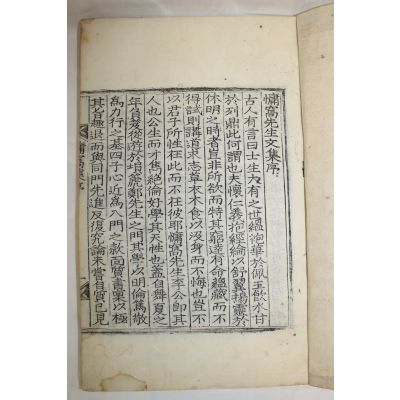 慵窩先生文集序
古人有言曰士生有之世縕袍華於佩玉飮水甘
於列鼎此何謂也夫懷仁義抱經綸以舒翼揚靈於
休明之時者豈非所欲而特其窮達有命蘊藏而不
得試則講道求志草衣木食以沒身而不悔也豈不
以君子所性在此而不在彼耶慵窩先生李公卽其
人也公生而才雋絶倫好學其天性也蓋自舞夏之
年負笈從遊於塤篪鄭先生之門其學以明倫篤敬
爲力行之基四子心近爲入門之款面質書稟以極
其旨趣退而與同門先進反復究論未嘗自質已見